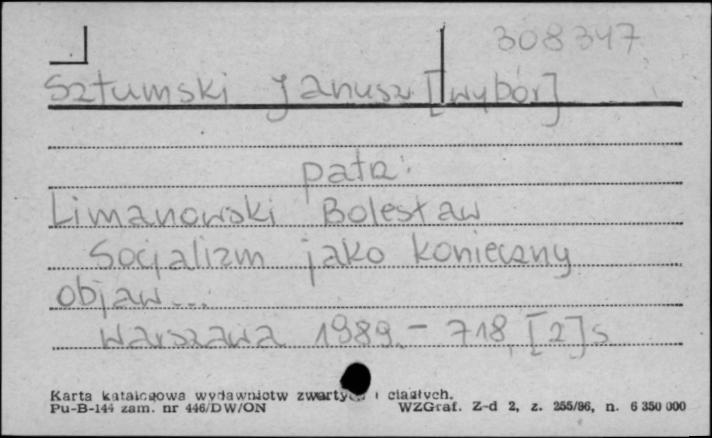 308347
Sztumski Janusz [wybór]
patrz:
Limanowski Bolesław
Socjalizm jako konieczny
objaw...
Warszawa 1989. - 718, [2] s
Karta katalogowa wydawnictw zwartych i ciągłych.
Pu-B-144 zam. nr 446/DW/ON
WZGraf. Z-d 2, z. 255/86, n. 6 350 000